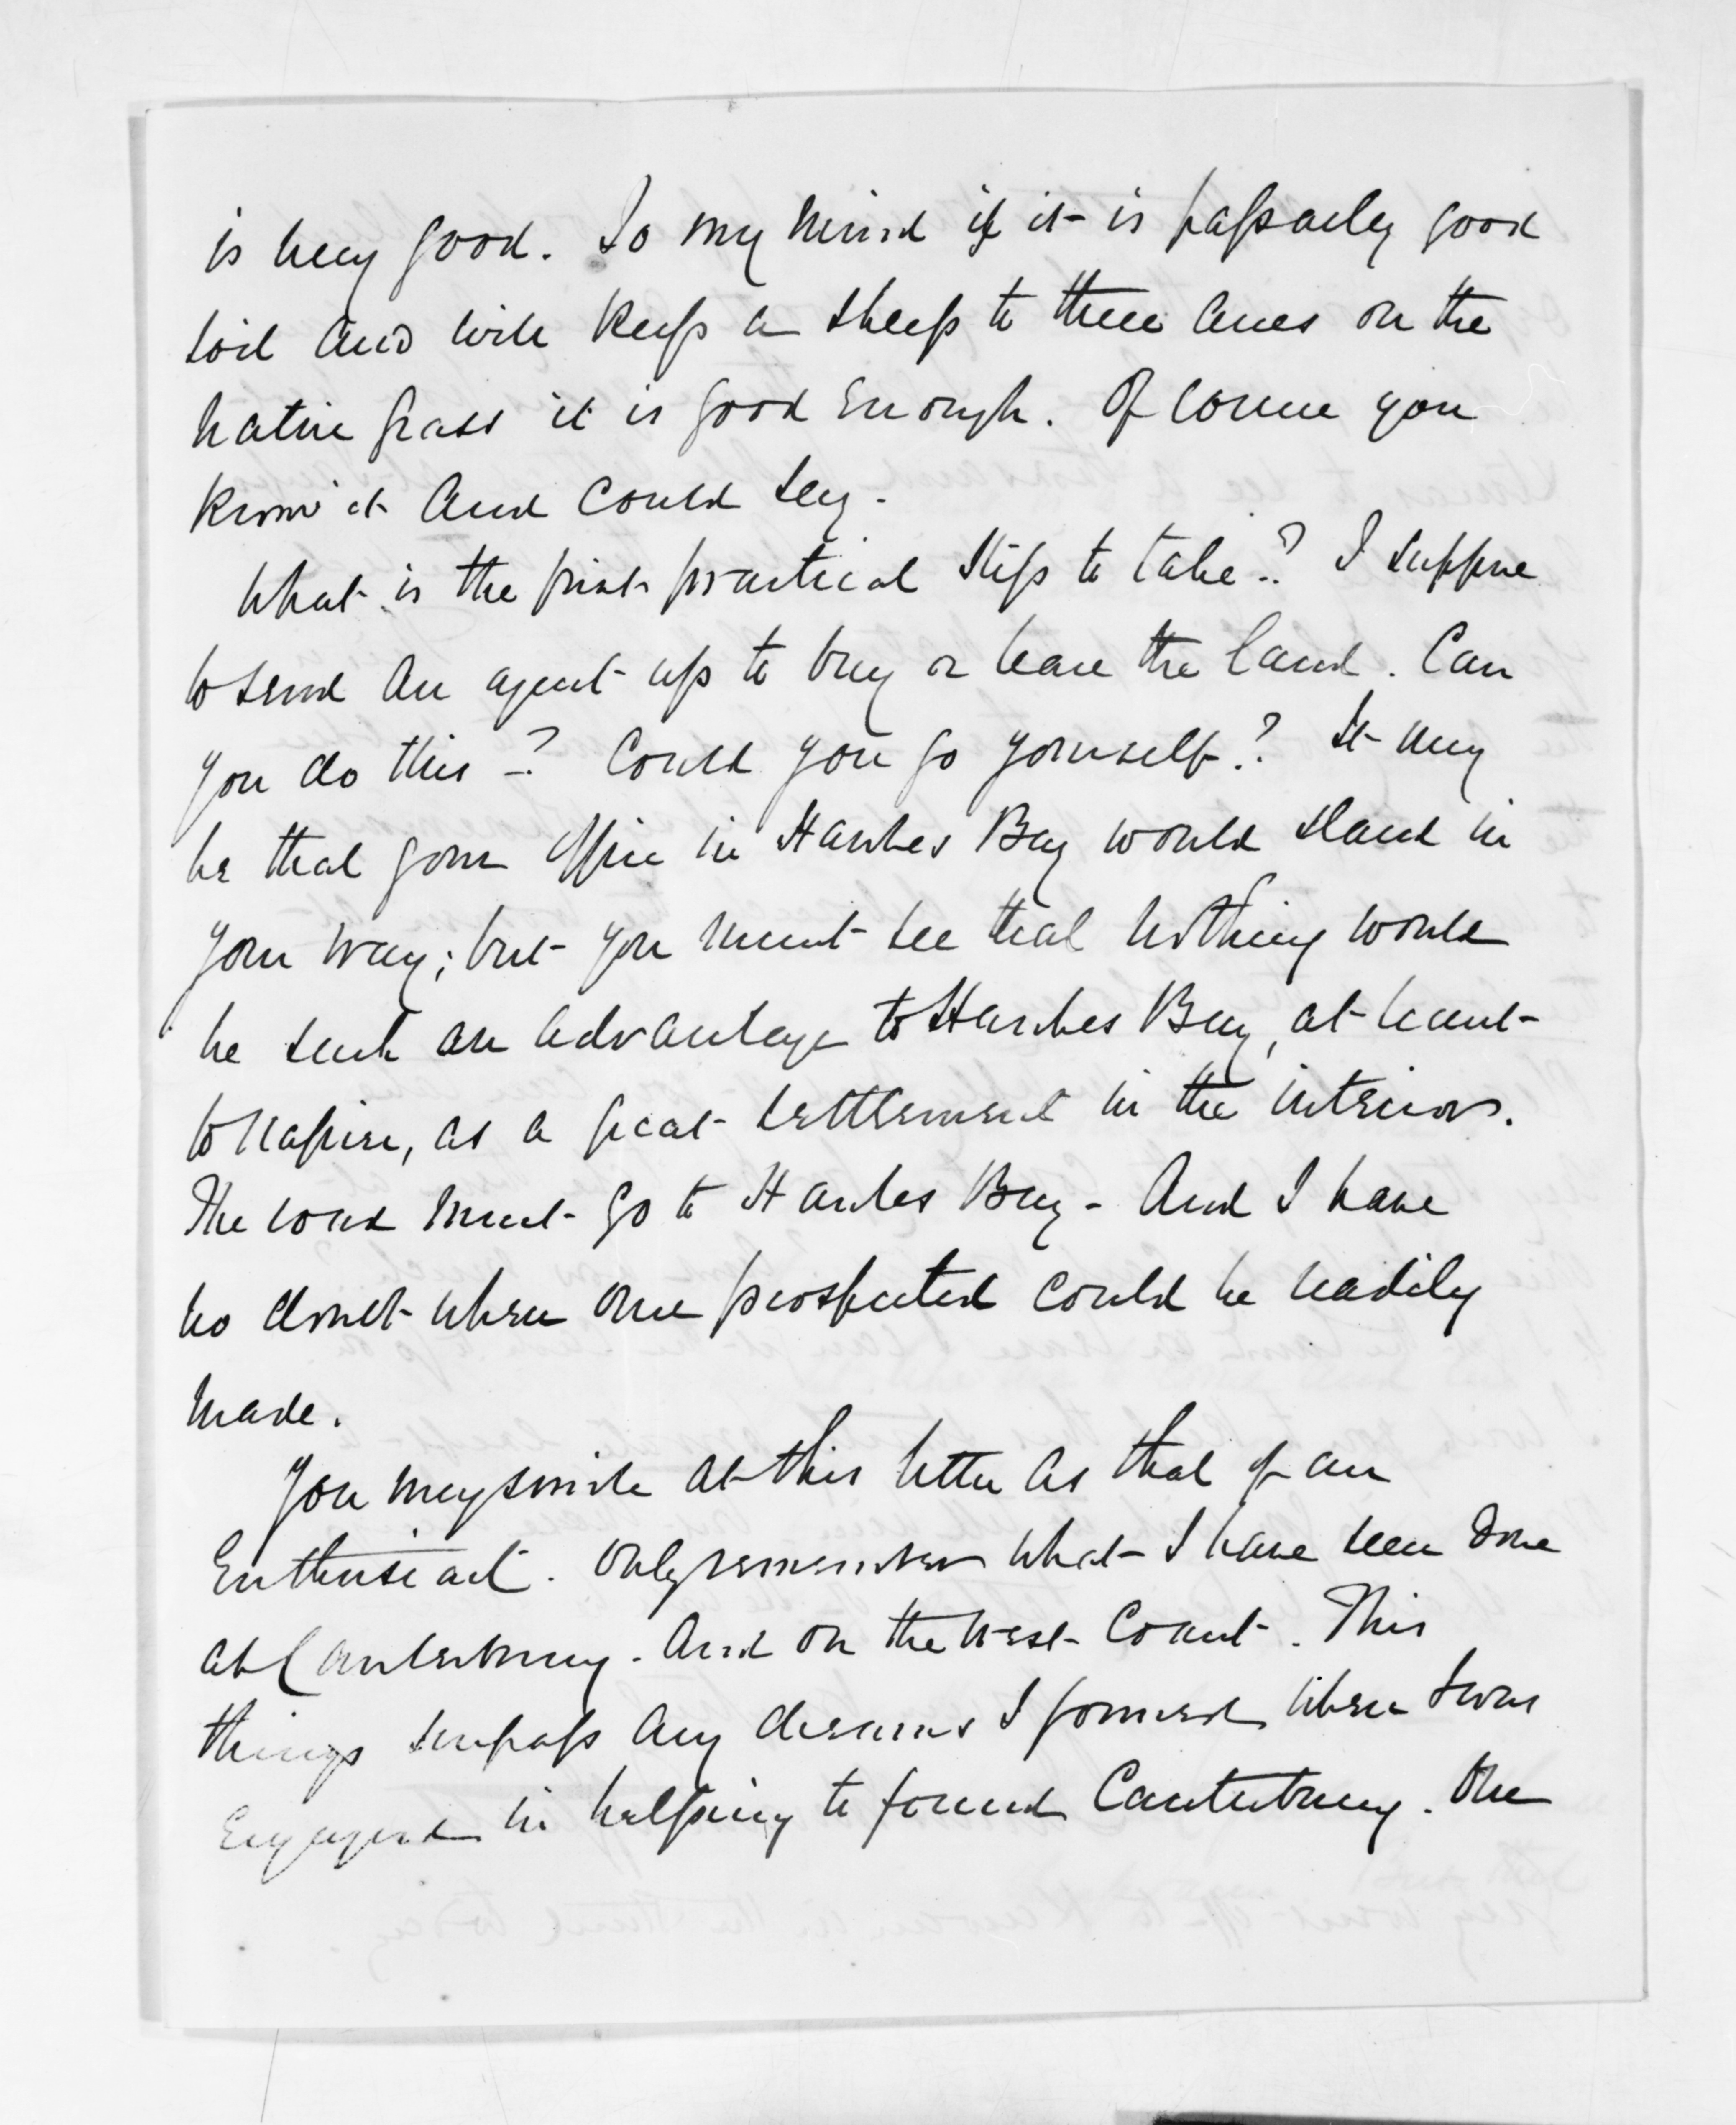 is very good. To my mind if it is passably good
soil and will keep a sheep to three acres on the
native grass it is good enough. Of course you
know it and could say.
What is the first practical step to take? I suppose
to send an agent up to buy or lease the land. Can
you do this? Could you go yourself? It may
be that your office in Hawkes Bay would stand in
your way; but you must see that nothing would
be such an advantage to Hawkes Bay, at least
to Napier, as a great settlement in the interior.
The road must go to Hawkes Bay - And I have
no doubt when once prospected could be readily
made.
You may smile at this letter as that of an
Enthusiast. Only remember what I have seen done
at Canterbury. And on the West Coast. This
things surpass any dreams I formed when I was
Engaged in helping to found Canterbury. One